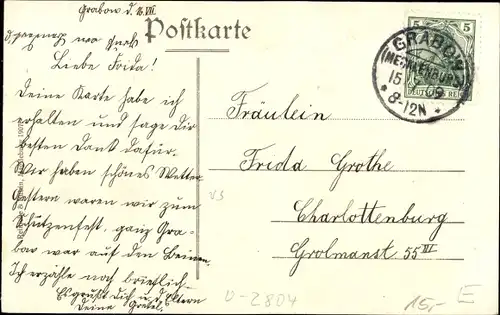 Grabow d. 8. VII.
Postkarte
Liebe Frida!
Deine Karte habe ich
erhalten und sage dir
besten Dank dafür.
Wir haben schönes Wetter
Gestern waren wir zum
Schützenfest, ganz Gra-
bow war auf den Beinen
Ich erzähle noch brieflich
Es grüßt Dich u. d. Eltern
Deine Gretel.
Fräulein
Frida Grothe
Charlottenburg
Grolmanst. 55 III
5 5
GRABOW
(MECKLENBURG)
15
* 8-12N *
DEUTSCHES REICH
V3
U-2804
15,-
E